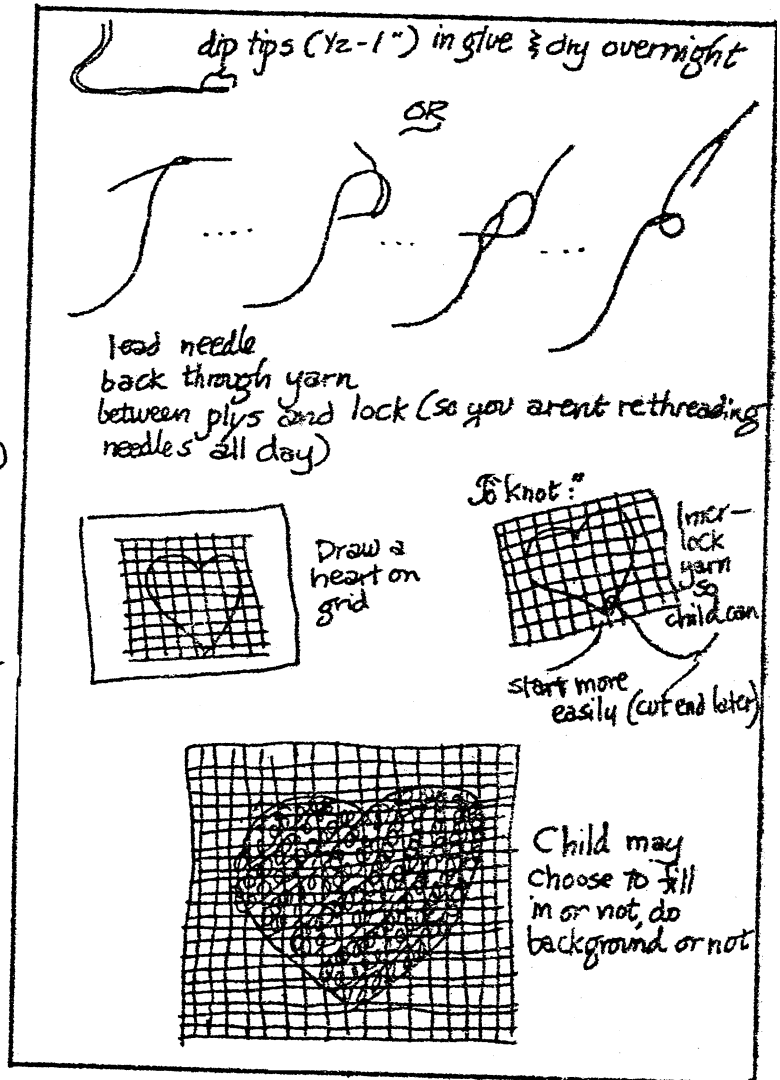 dip tips (1/2-1") in glue & dry overnight
OR
lead needle
back through yarn
between plys and lock (so you arent rethreading
needles all day)
Draw a
heart on
grid
To knot:"
Inter-
lock
yarn
so
child can
start more
easily (cut end later)
Child may
choose to fill
in or not, do
background or not